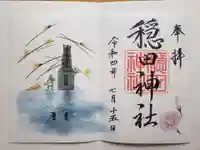 奉拝
穏田神社
令和四年 七月十五日